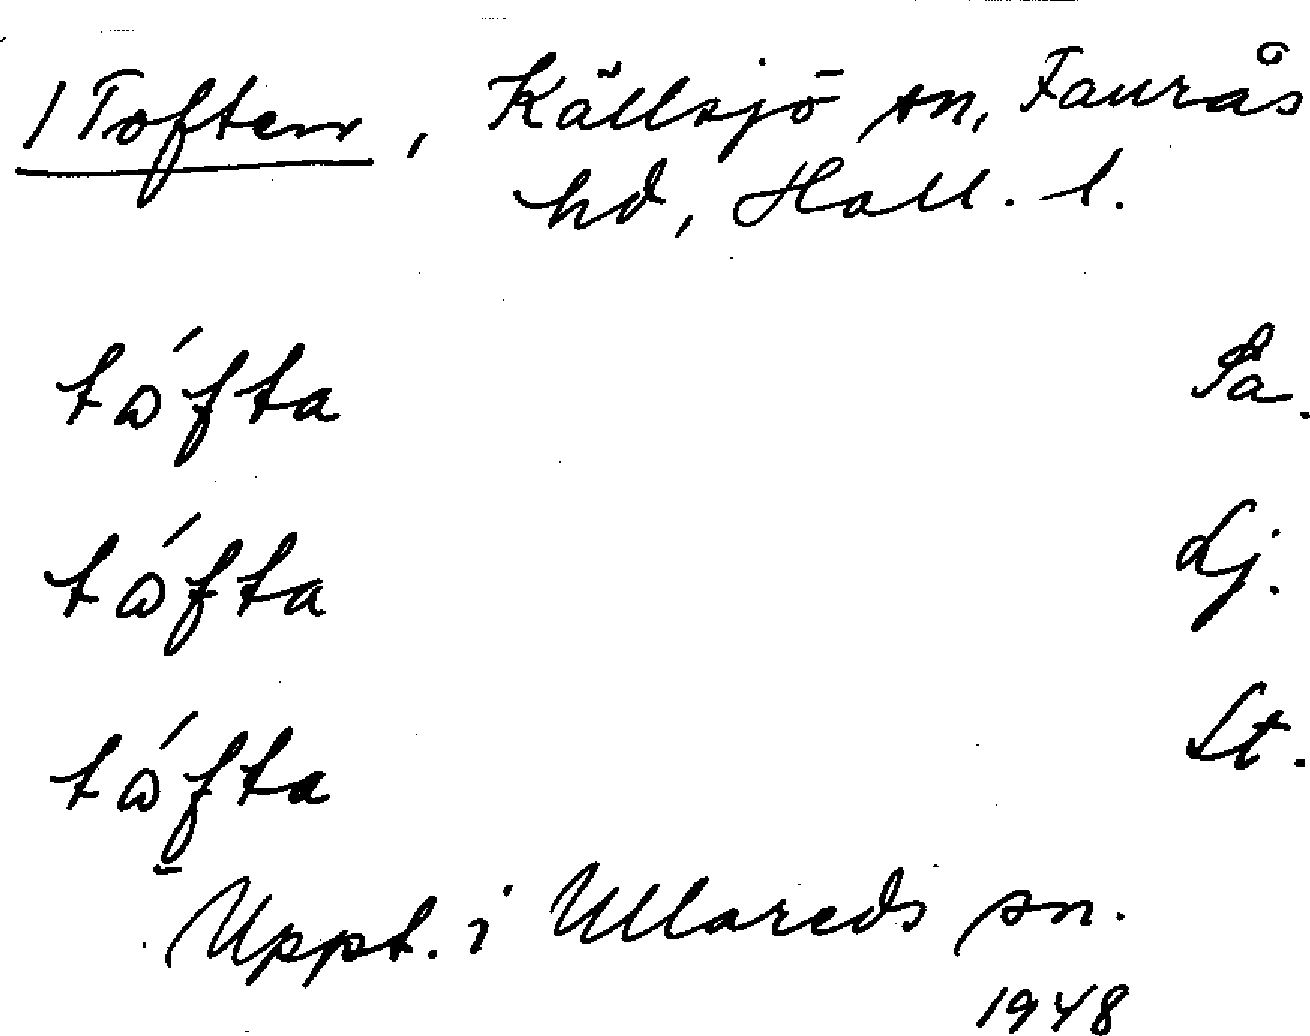 1 Toften, Källsjö sn, Faurås
hd, Hall. l.
tófta Pa.
tófta Lj.
tófta St.
Uppt. i Ullareds sn.
1948